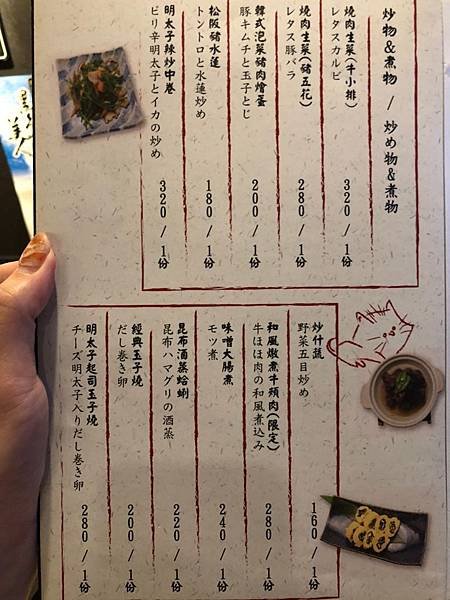 炒物&煮物 / 炒め物&煮物
燒肉生菜(牛小排)
レタスカルビ
320/1份
燒肉生菜(豬五花)
レタス豚バラ
280/1份
韓式泡菜豬肉燴蛋
豚キムチと玉子とじ
200/1份
松阪豬水蓮
トントロと水蓮炒め
180/1份
明太子辣炒中卷
ピリ辛明太子とイカの炒め
320/1份
炒什蔬
野菜五目炒め
160/1份
和風燉煮牛頰肉(限定)
牛ほほ肉の和風煮込み
280/1份
味噌大腸煮
モツ煮
240/1份
昆布酒蒸蛤蜊
昆布ハマグリの酒蒸
220/1份
經典玉子燒
だし巻き卵
200/1份
明太子起司玉子燒
チーズ明太子入りだし巻き卵
280/1份